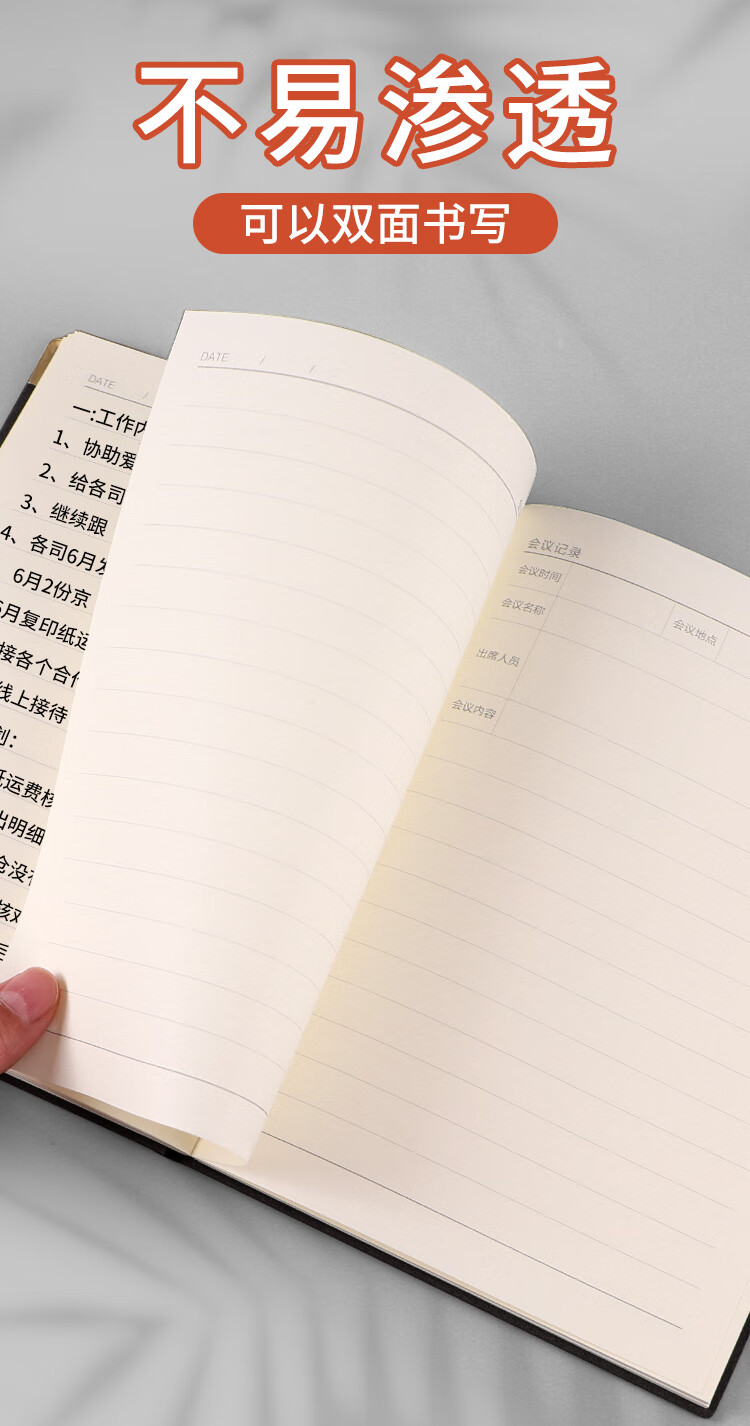 不易渗透
可以双面书写
DATE / /
DATE /
一:工作内
1、协助爱
2、给各司
3、继续跟
4、各司6月发
6月2份京
6月复印纸运
接各个合作
线上接待
划:
托运费核
出明细
仓没有
核对
会议记录
会议时间
会议名称
会议地点
出席人员
会议内容